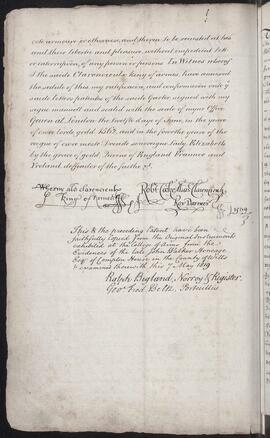 cote armour or otherwise, and theron to be revested at his
and there libertie and pleasure, without impediment let
or interruption, of any person or persons. In Witnes whereof
I the saide Clarencieulx King of armes, have annexed
the saide of this my ratification, and confirmacon unto
letters patents of the saide Garter signed with my
signe manuell and sealed with the seale of myne Office
Geven at London the twelfth daye of June, in the yeare
of oure lorde godd 1562, and in the fourthe yeare of the
reigne of oure most Dreade soveraigne lady Elizabeth
by the grace of godd Quene of England Fraunce and
Ireland, defender of the faithe &c.
Robt Cooke Alias Clarencieulx
King of
Roy Darmes
This & the preceding Patent have been
faithfully Copied from the Original Instruments
exhibited at the College of Arms from the
Evidences of the late John Walker Heneage
Esqr. of Compton House in the County of Wilts
& examined therewith this 7 May 1809
Ralph Bigland, Norroy & Register.
Geo. Fred. Beltz. Portcullis